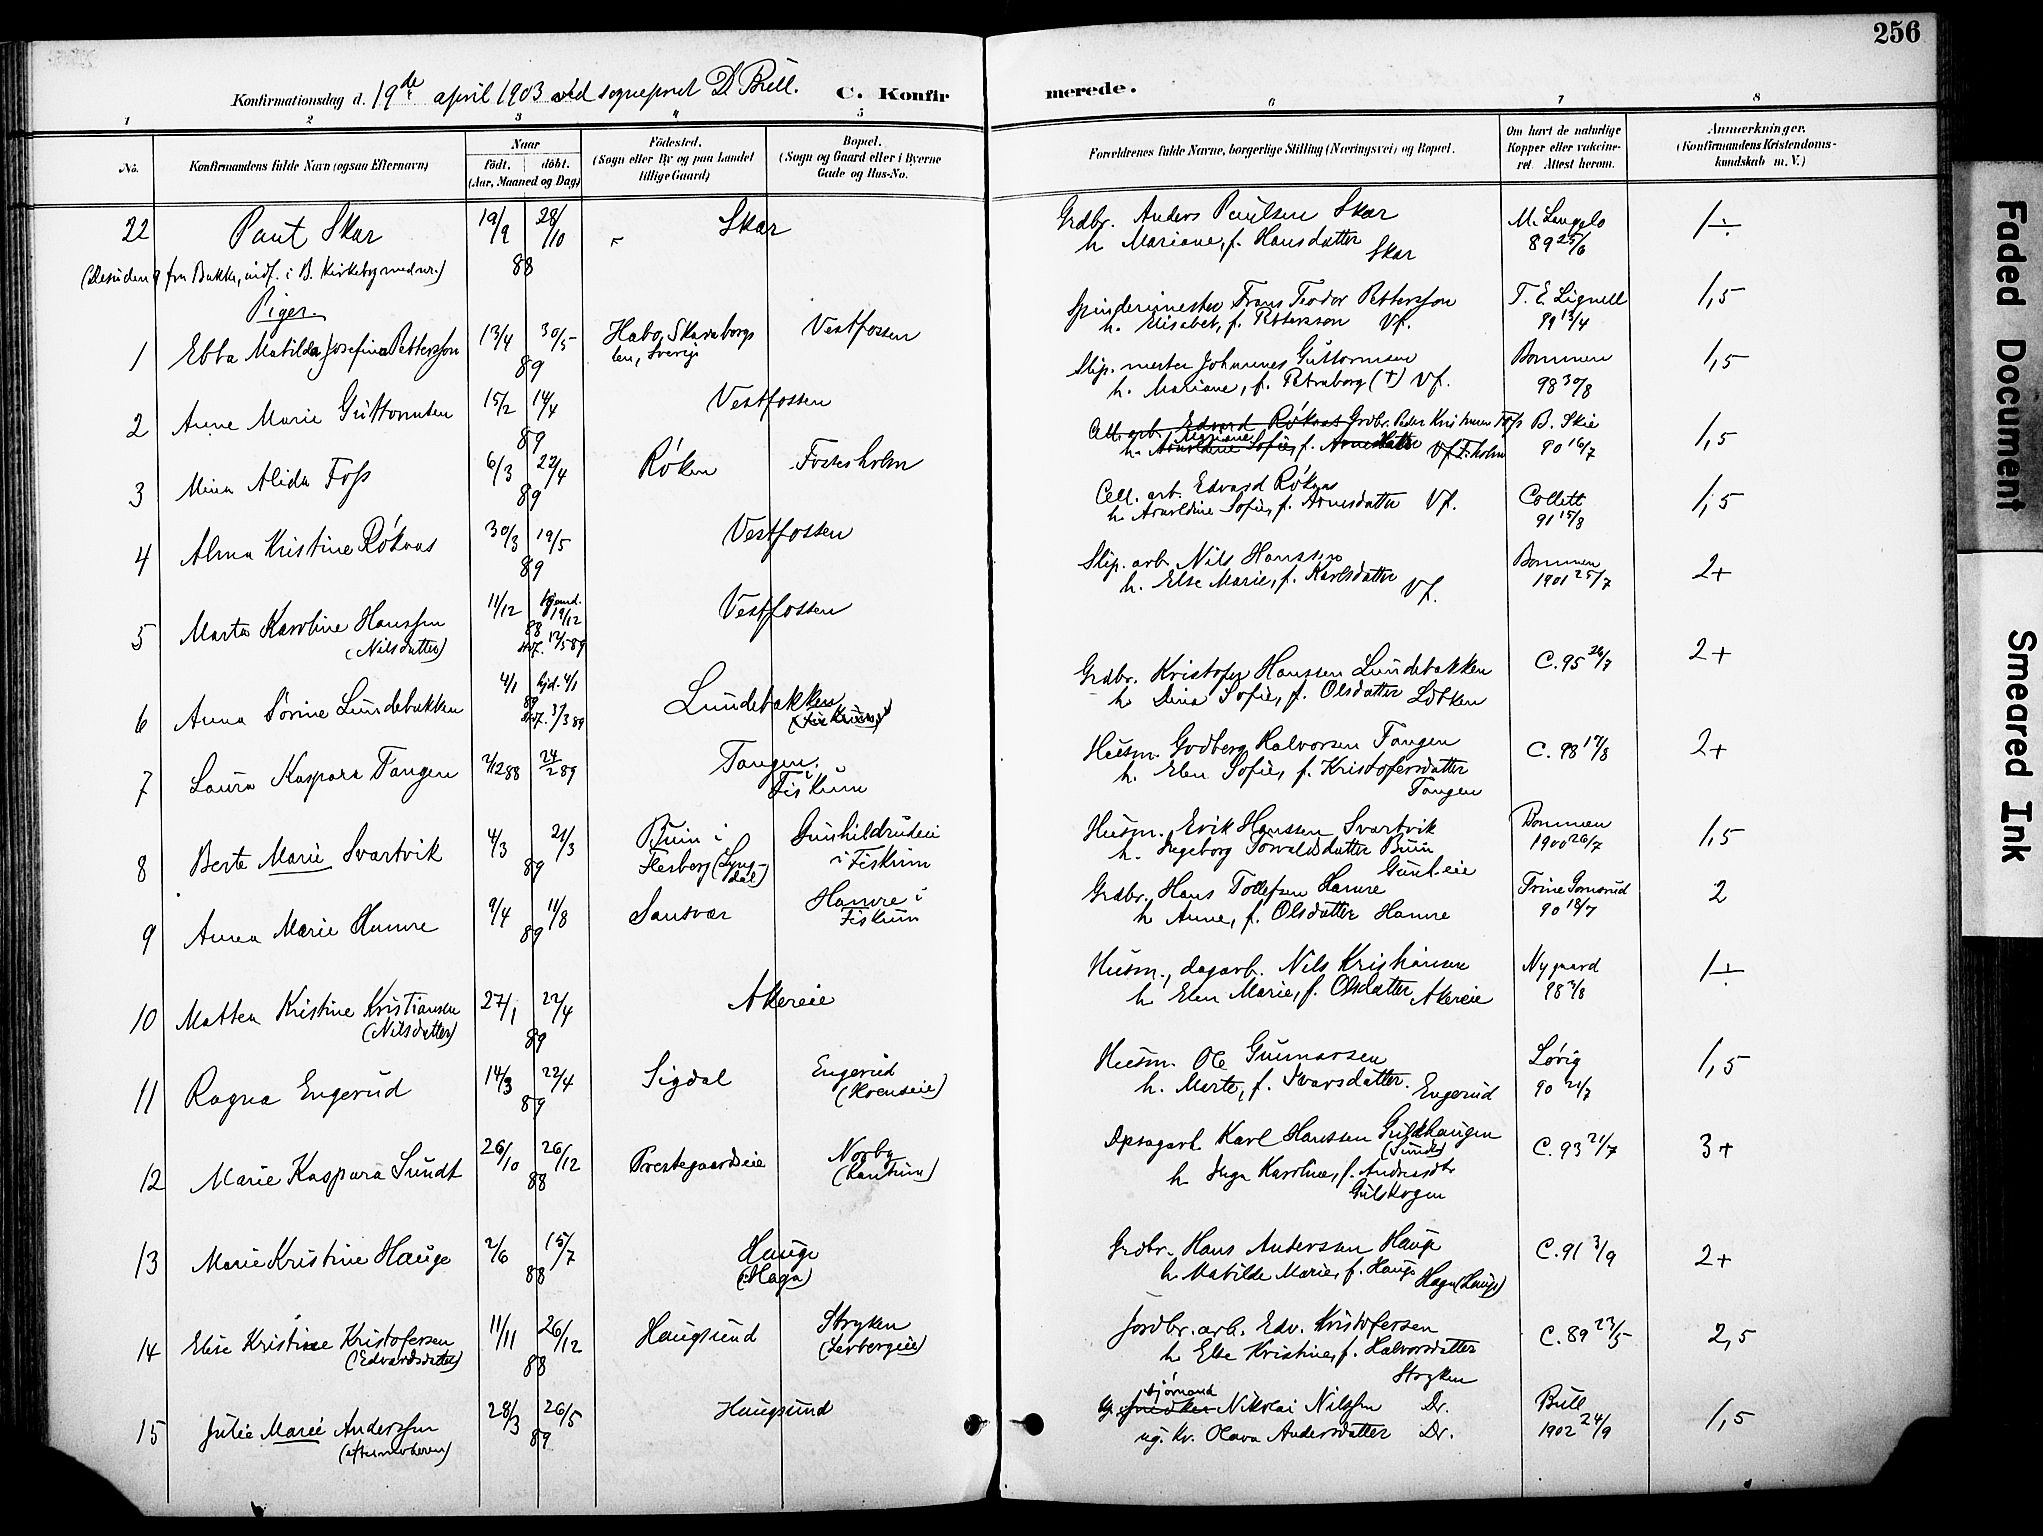 256
Konfirmationsdag d. 19de april 1903 ved sogneprest D. Bull.
C. Konfirmerede.
1 2 3 4 5 6 7 8
No.
Konfirmandens fulde Navn (ogsaa Efternavn)
Naar
født. døbt.
(Aar, Maaned og Dag)
Fødested.
(Sogn eller By og paa Landet tillige Gaard)
Bopæl.
(Sogn og Gaard eller i Byerne Gade og Hus-No.
Forældrenes fulde Navne, borgerlige Stilling (Næringsvei) og Bopæl.
Om havt de naturlige Kopper eller vaccineret. Attest herom.
Anmærkninger.
(Konfirmandens Kristendomskundskab m. V.)
22 Paul Skar 19/9 28/10 88 Skar
Grdbr. Anders Paulsen Skar
h. Mariane, f. Hansdatter Skar
M. Langelo 89 25/6
1÷
Piger.
1 Ebba Matilda Josefina Pettersson 13/4 30/5 89 Habo, Skaraborgs len, Sverige Vestfossen
Spinderimester Frans Teodor Pettersson
h. Elisabet, f. Pettersson Vf.
T. E. Lignell 89 13/4
1,5
2 Anne Marie Guttormsen 15/2 14/4 89 Vestfossen
Slip. mester Johannes Guttormsen
h. Mariane, f. Petraborg (+) Vf.
Bommen 98 30/8
1,5
3 Mina Alida Foss 6/3 22/4 89 Røken Fossesholm
Cell. arb. Edvard Røkaas Grdbr. Peder Kristensen Foss
B. Skie 90 16/7
1,5
4 Alma Kristine Røkaas 30/3 19/5 89 Vestfossen
Cell. arb. Edvard Røkaas
h. Sofie, f. Arnesdatter Vf.
Collett 91 15/8
1,5
5 Marta Karoline Hanssen (Nilsdatter) 11/12 Hjemd. 19/12 88 12/5 89 Vestfossen
Slip. arb. Nils Hanssen
h. Else Marie, f. Karlsdatter Vf.
Bommen 1901 25/7
2+
6 Anna Sørine Lundebakken 4/1 hjd. 4/1 89 Lundebakken (Fiskum)
Grdbr. Kristofer Hanssen Lundebakken
h. Dina Sofie, f. Olsdatter
C. 95 26/7
2+
7 Laura Kaspara Tangen 2/12 88 24/2 89 Tangen i Fiskum
Husm. Godberg Halvorsen Tangen
h. Elen Sofie, f. Kristofersdatter
Tangen
C. 98 17/8
2+
8 Berte Marie Svartvik 4/3 21/3 89 Buin i Flesberg (Lyngdal) Gunhildrudeie i Fiskum
Husm. Erik Hanssen Svartvik
h. Ingeborg Torvaldsdatter Buin
Gunh.eie
Bommen 1900 26/7
1,5
9 Anna Marie Hamre 9/4 11/8 89 Sansvær Hamre i Fiskum
Grdbr. Hans Tollefsen Hamre
h. Anne, f. Olsdatter Hamre
Trine Gomsrud 90 18/7
2
10 Mattea Kristine Kristiansen (Nilsdatter) 27/1 22/4 89 Akereie
Husm., dagarb. Nils Kristiansen
h. Elen Marie, f. Olsdatter Akereie
Nygaard
1÷
11 Ragna Engerud 14/3 22/4 89 Sigdal Engerud
Husm. Ole Gunnarsen
h. Marte, f. Ivarsdatter. Engerud
Lørig 90 21/7
1,5
12 Marie Kaspara Sundt 26/10 26/12 88 Prestegaardseie Norby
Dpsagarb. Karl Hanssen Gulhaugen (Sundt)
h. Inga Karoline, f. Andreasdtr
Gulskogen
C. 93 21/7
3+
13 Marie Kristine Hauge 2/6 15/7 88 Hauge (Haga)
Grdbr. Hans Anderssen Hauge
h. Matilde Marie, f. Hauge Haga (Hauge)
C. 91 3/9
2+
14 Elise Kristine Kristofersen (Edvardsdatter) 11/11 26/12 88 Haugsund Stryken
Jordbr. arb. Edv. Kristofersen
h. Else Kristine, f. Halvorsdatter
Stryken
C. 89 23/5
2,5
15 Julie Marie Anderssen 28/3 26/5 89 Haugsund
sjømand
Nikolai Nilssen Dr.
ug. Kv. Olava Andersdatter Dr.
Bull 1902 24/9
1,5
Faded Document
Smeared Ink